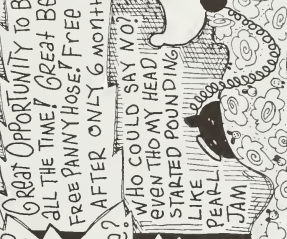 Great Opportunity to B
all the Time! Great Be
Free Pannyhose! Free
after only 6 month
?
Who could say no?
even tho my head
started pounding
like
Pearl
Jam